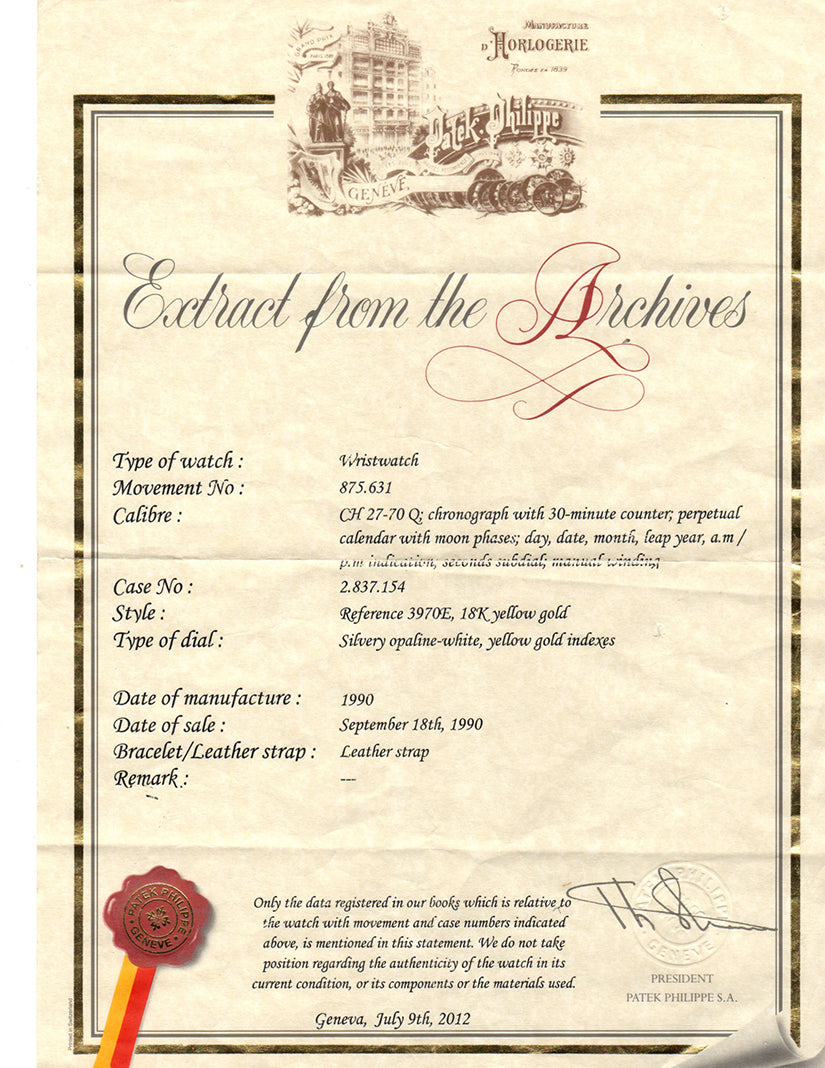 GRAND PRIX
MANUFACTURE
D'HORLOGERIE
FONDÉE EN 1839
Patek Philippe
GENÈVE
Extract from the Archives
Type of watch : Wristwatch
Movement No : 875.631
Calibre : CH 27-70 Q; chronograph with 30-minute counter; perpetual
calendar with moon phases; day, date, month, leap year, a.m /
p.m indication, seconds subdial; manual winding
Case No : 2.837.154
Style : Reference 3970E, 18K yellow gold
Type of dial : Silvery opaline-white, yellow gold indexes
Date of manufacture : 1990
Date of sale : September 18th, 1990
Bracelet/Leather strap : Leather strap
Remark : ---
PATEK PHILIPPE
GENEVE
Only the data registered in our books which is relative to
the watch with movement and case numbers indicated
above, is mentioned in this statement. We do not take
position regarding the authenticity of the watch in its
current condition, or its components or the materials used.
Geneva, July 9th, 2012
PATEK PHILIPPE
GENEVE
PRESIDENT
PATEK PHILIPPE S.A.
Printed in Switzerland